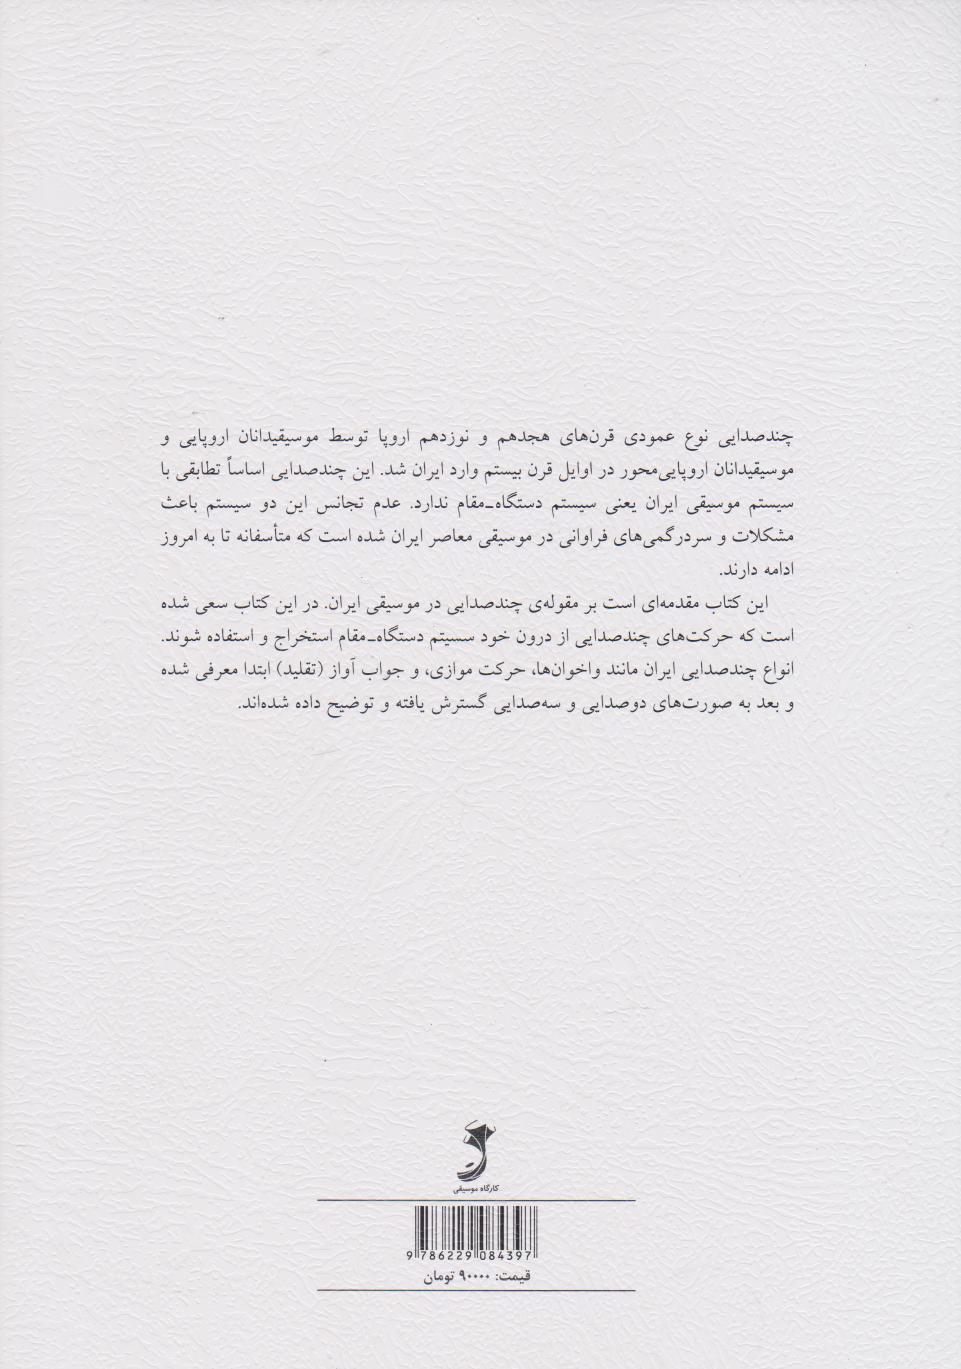 چندصدایی نوع عمودی قرن‌های هجدهم و نوزدهم اروپا توسط موسیقیدانان اروپایی و
موسیقیدانان اروپایی‌محور در اوایل قرن بیستم وارد ایران شد. این چندصدایی اساساً تطابقی با
سیستم موسیقی ایران یعنی سیستم دستگاه-مقام ندارد. عدم تجانس این دو سیستم باعث
مشکلات و سردرگمی‌های فراوانی در موسیقی معاصر ایران شده است که متأسفانه تا به امروز
ادامه دارند.
این کتاب مقدمه‌ای است بر مقوله‌ی چندصدایی در موسیقی ایران. در این کتاب سعی شده
است که حرکت‌های چندصدایی از درون خود سیستم دستگاه-مقام استخراج و استفاده شوند.
انواع چندصدایی ایران مانند واخوان‌ها، حرکت موازی، و جواب آواز (تقلید) ابتدا معرفی شده
و بعد به صورت‌های دوصدایی و سه‌صدایی گسترش یافته و توضیح داده شده‌اند.
کارگاه موسیقی
9 786229 084397
قیمت: ۹۰۰۰۰ تومان